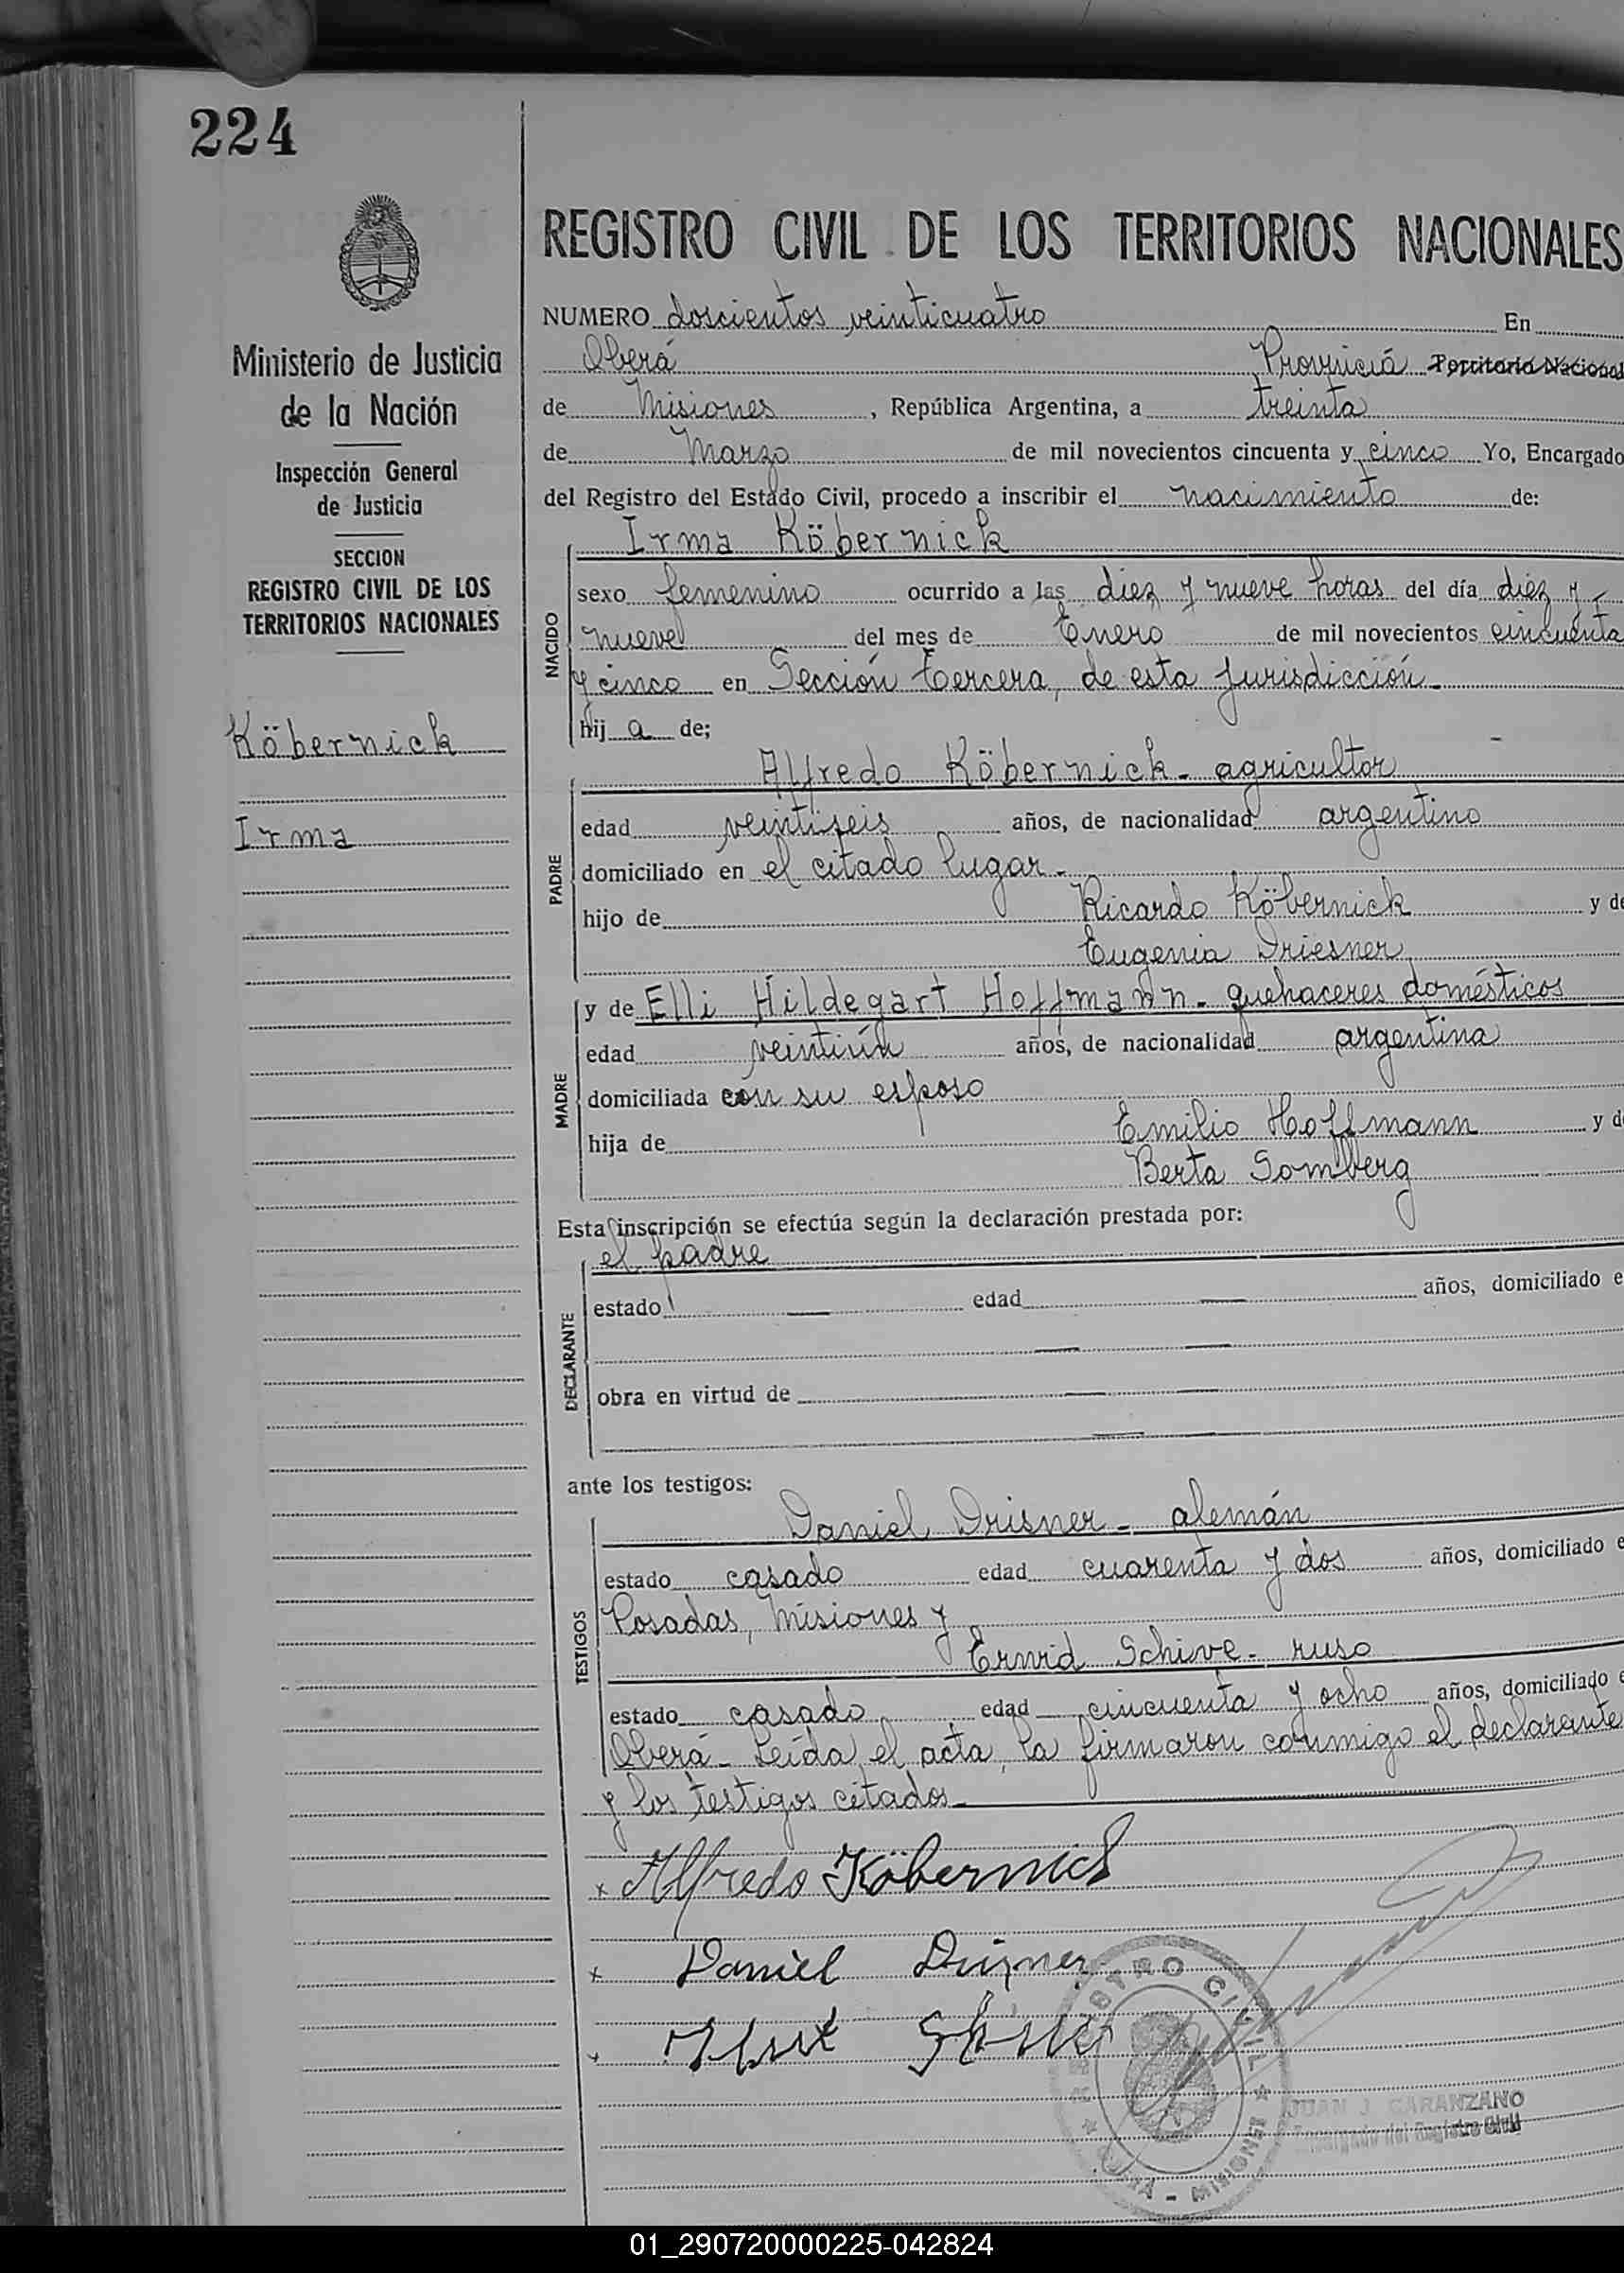 224
REGISTRO CIVIL DE LOS TERRITORIOS NACIONALES
NUMERO doscientos veinticuatro En
Oberá Provincia Territorio Nacional
de Misiones, República Argentina, a treinta
de Marzo de mil novecientos cincuenta y cinco Yo, Encargado
del Registro del Estado Civil, procedo a inscribir el nacimiento de:
Ministerio de Justicia
de la Nación
Inspección General
de Justicia
SECCION
REGISTRO CIVIL DE LOS
TERRITORIOS NACIONALES
Köbernick
Irma
NACIDO
Irma Köbernick
sexo femenino ocurrido a las diez y nueve horas del día diez y
nueve del mes de Enero de mil novecientos cincuenta
y cinco en Sección tercera, de esta jurisdicción-
hij a de;
PADRE
Alfredo Köbernick - agricultor
edad veintiseis años, de nacionalidad argentino
domiciliado en el citado lugar-
hijo de Ricardo Köbernick y de
Eugenia Driesner
MADRE
y de Elli Hildegart Hoffmann - quehaceres domésticos
edad veintiún años, de nacionalidad argentina
domiciliada con su esposo
hija de Emilio Hoffmann y d
Berta Somberg
Esta inscripción se efectúa según la declaración prestada por:
DECLARANTE
el padre
estado — edad — años, domiciliado e
— —
obra en virtud de — —
— —
ante los testigos:
TESTIGOS
Daniel Drisner - alemán
estado casado edad cuarenta y dos años, domiciliado e
Posadas, Misiones y
Erwid Schive - ruso
estado casado edad cincuenta y ocho años, domiciliado e
Oberá - Leída el acta, la firmaron conmigo el declarante
y los testigos citados-
x Alfredo Köbernick
x Daniel Drisner
x
REGISTRO CIVIL
OBERÁ - MISIONES
JUAN J. CARANZANO
Encargado del Registro Civil
01_290720000225-042824